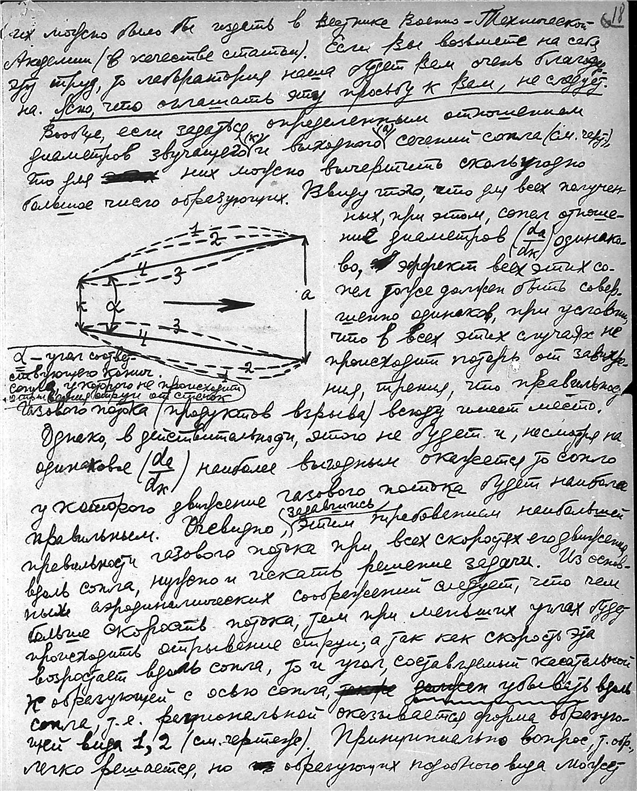 18
их можно было бы издать в Вестнике Военно-Технической
Академии (в качестве статьи). Если Вы возьмете на себя
эту труд, то лаборатория наша будет Вам очень благодар-
на. Ясно, что оглашать эту просьбу к Вам, не следует.
Вообще, если задаться определенным отношением
диаметров звучащего (к) и выходного (а) сечений сопла (см. черт),
то для них можно вычертить сколь угодно
большое число образующих. Ввиду того, что для всех получен-
ных, при этом, сопел отноше-
ние диаметров (da/dк) одинако-
во, эффект всех этих со-
пел тоже должен быть совер-
шенно одинаков, при условии,
что в всех этих случаях не
происходит потерь от завихре-
ния, трения, что правильность
1
2
4
3
к
α
а
3
4
1
2
α – угол соответ-
ствующего конич.
сопла, у которого не происходит
отрывания струи от стенок
газового потока (продуктов взрыва) всюду имеет место.
Однако, в действительности, этого не будет и, несмотря на
одинаковое (da/dк) наиболее выгодным окажется то сопло
у которого движение газового потока будет наиболее
правильным. Очевидно, задавшись этим требованием наибольшей
правильности газового потока при всех скоростях его движения
вдоль сопла, нужно и искать решение задачи. Из основ-
ных аэродинамических соображений следует, что чем
больше скорость потока, тем при меньших углах будет
происходить отрывание струи; а так как скорость эта
возрастает вдоль сопла, то и угол, составляемый касательной
к образующей с осью сопла, должен убывать вдоль
сопла, т.е. рациональной оказывается форма образую-
щей вида 1, 2 (см. чертеж). Принципиально вопрос, т. обр.
легко решается, но образующих подобного вида может